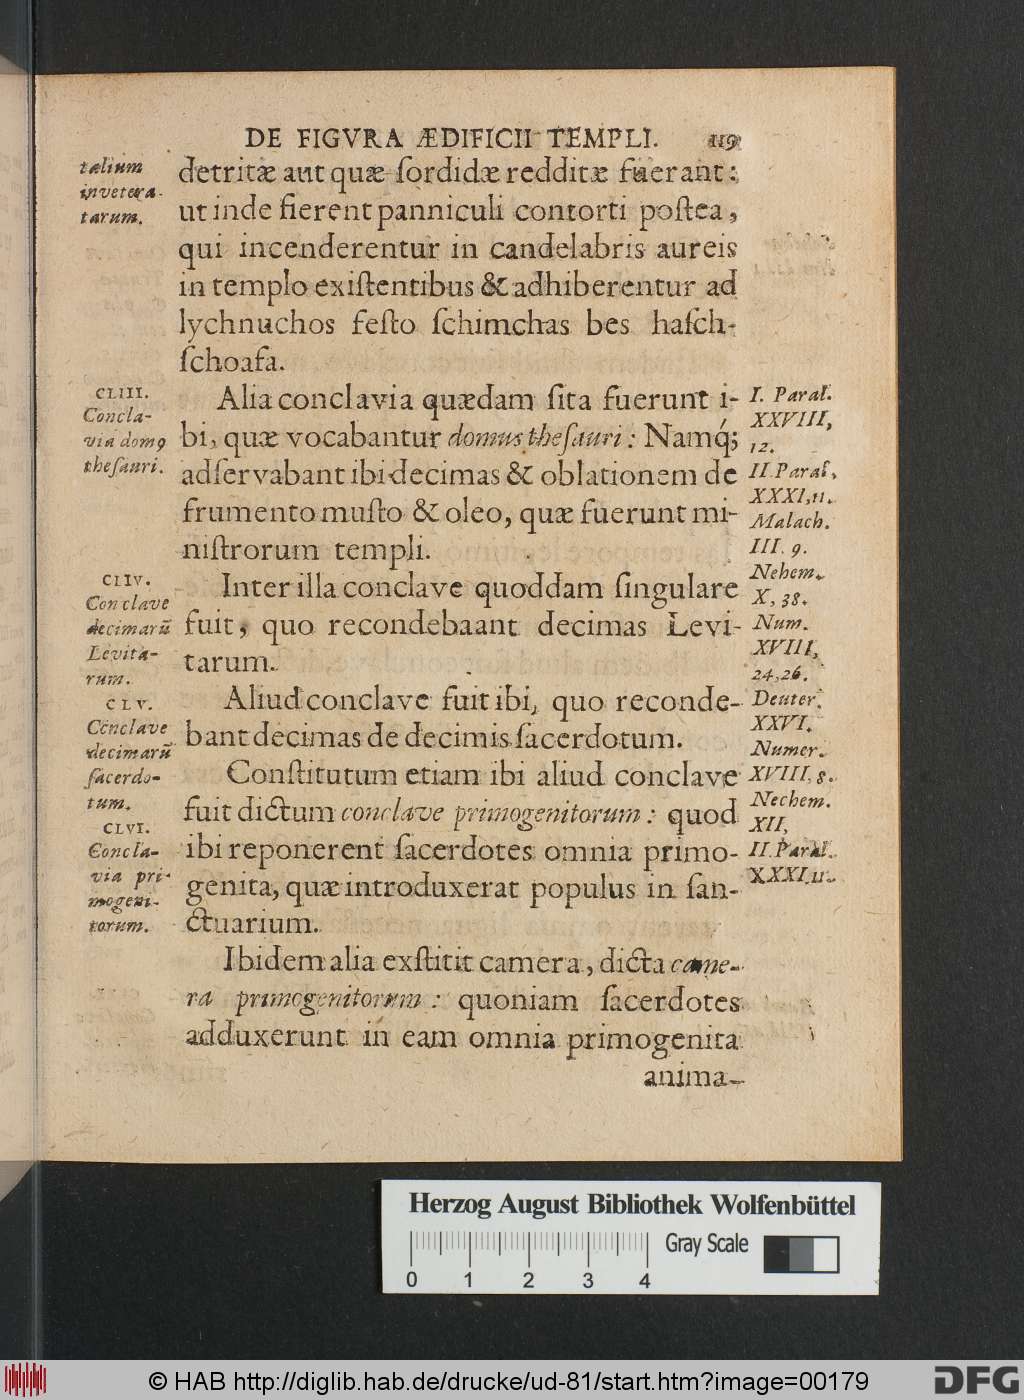 DE FIGVRA ÆDIFICII TEMPLI. 119
talium
invetera-
tarum.
detritæ aut quæ ſordidæ redditæ fuerant:
ut inde fierent panniculi contorti poſtea,
qui incenderentur in candelabris aureis
in templo exiſtentibus & adhiberentur ad
lychnuchos feſto ſchimchas bes haſch-
ſchoafa.
CLIII.
Concla-
via domꝰ
theſauri.
Alia conclavia quædam ſita fuerunt i-
bi, quæ vocabantur domus theſauri: Namq́;
adſervabant ibi decimas & oblationem de
frumento muſto & oleo, quæ fuerunt mi-
niſtrorum templi.
I. Paral.
XXVIII,
12.
II Paral.
XXXI, 11.
Malach.
III. 9.
Nehem.
X, 38.
Num.
XVIII,
24, 26.
Deuter.
XXVI.
Numer.
XVIII, 8.
Nechem.
XII,
II Paral.
XXXI, 11.
CLIV.
Conclave
decimarũ
Levita-
rum.
Inter illa conclave quoddam ſingulare
fuit, quo recondebaant decimas Levi-
tarum.
CLV.
Conclave
decimarũ
ſacerdo-
tum.
Aliud conclave fuit ibi, quo reconde-
bant decimas de decimis ſacerdotum.
CLVI.
Concla-
via pri-
mogeni-
torum.
Conſtitutum etiam ibi aliud conclave
fuit dictum conclave primogenitorum: quod
ibi reponerent ſacerdotes omnia primo-
genita, quæ introduxerat populus in ſan-
ctuarium.
Ibidem alia exſtitit camera, dicta came-
ra primogenitorum: quoniam ſacerdotes
adduxerunt in eam omnia primogenita
anima-
Herzog August Bibliothek Wolfenbüttel
0 1 2 3 4
Gray Scale
© HAB http://diglib.hab.de/drucke/ud-81/start.htm?image=00179
DFG